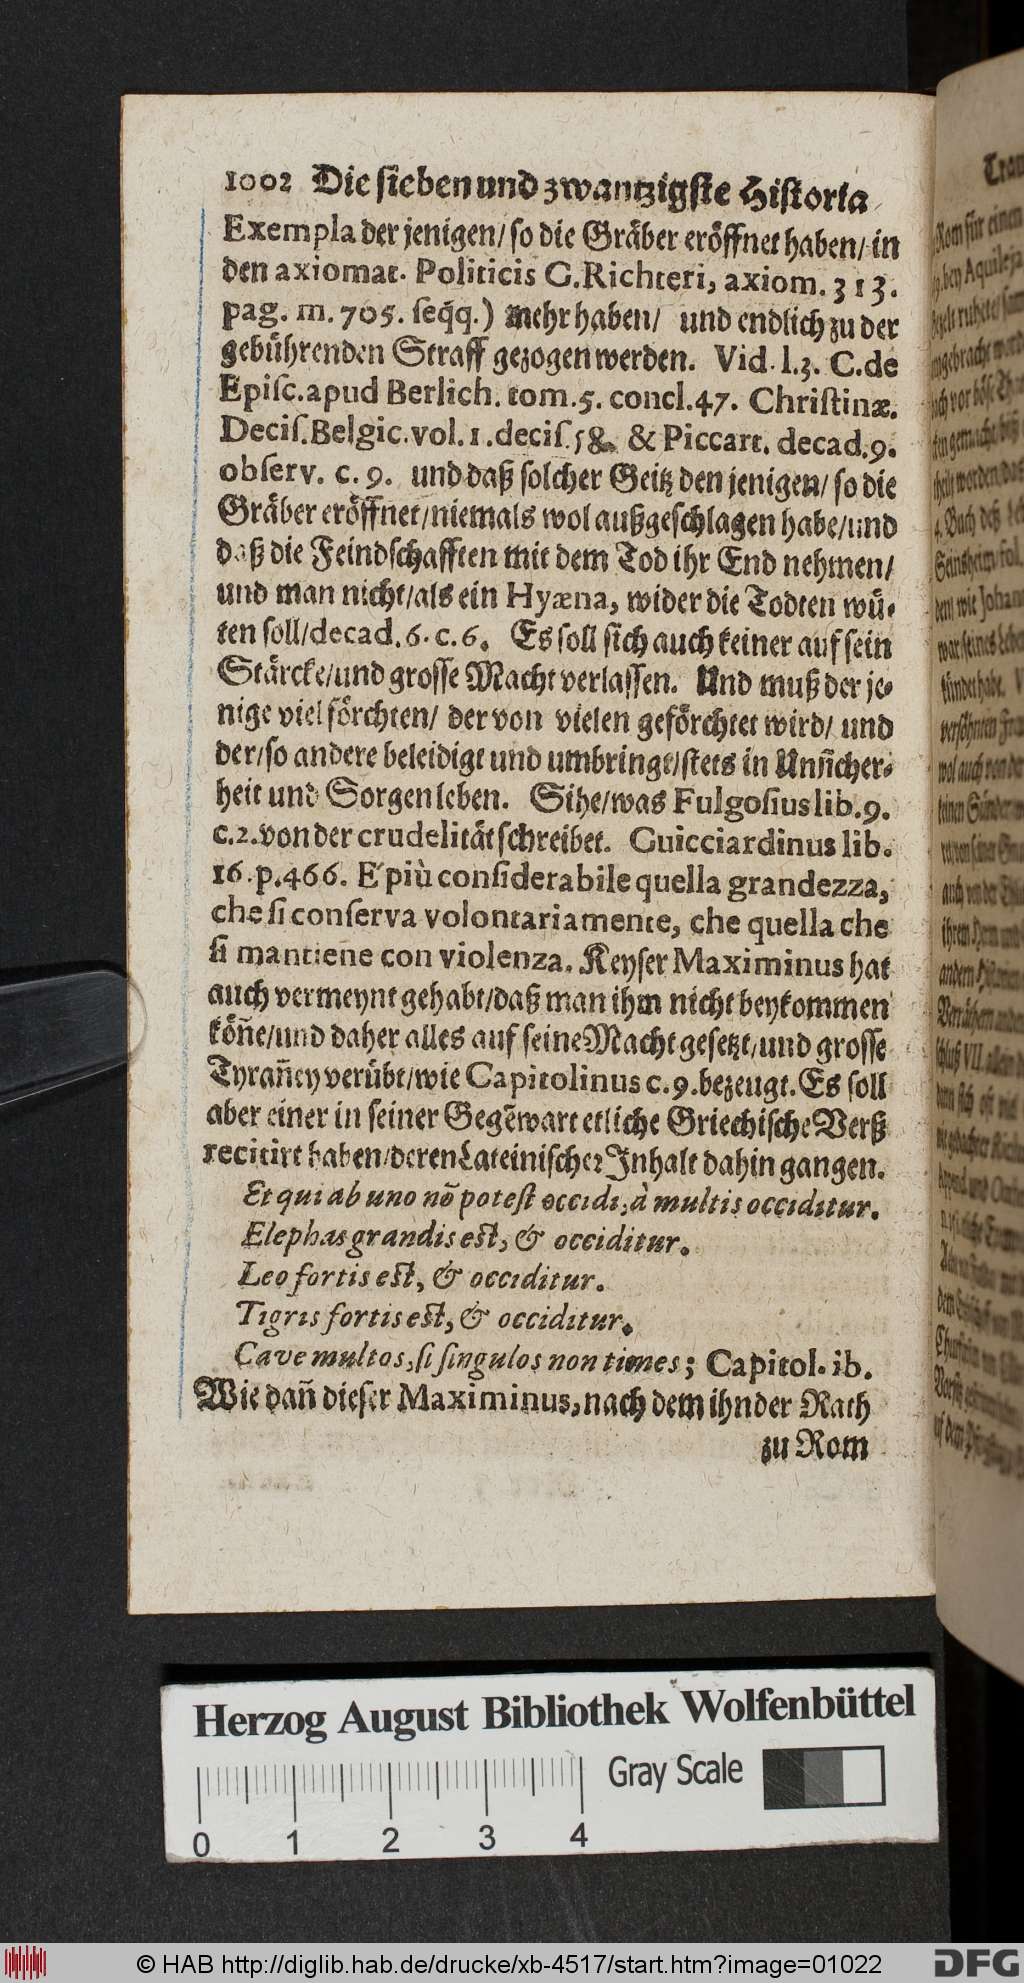 1002 Die sieben und zwantzigste Historia
Exempla der jenigen/ so die Gräber eröffnet haben/ in
den axiomat. Politicis G. Richteri, axiom. 313.
pag. m. 705. seqq̃.) mehr haben/ und endlich zu der
gebührenden Straff gezogen werden. Vid. l. 3. C. de
Episc. apud Berlich. tom. 5. concl. 47. Christinæ.
Decis. Belgic. vol. 1. decis. 58. & Piccart. decad. 9.
observ. c. 9. und daß solcher Geitz den jenigen/ so die
Gräber eröffnet/ niemals wol außgeschlagen habe/ und
daß die Feindschafften mit dem Tod ihr End nehmen/
und man nicht/ als ein Hyæna, wider die Todten wü-
ten soll/ decad. 6. c. 6. Es soll sich auch keiner auf sein
Stärcke/ und grosse Macht verlassen. Und muß der je-
nige viel förchten/ der von vielen geförchtet wird/ und
der/ so andere beleidigt und umbringt/ stets in Unsicher-
heit und Sorgen leben. Sihe/ was Fulgosius lib. 9.
c. 2. von der crudelität schreibet. Guicciardinus lib.
16. p. 466. E' più considerabile quella grandezza,
che si conserva volontariamente, che quella che
si mantiene con violenza. Keyser Maximinus hat
auch vermeynt gehabt/ daß man ihm nicht beykommen
köñe/ und daher alles auf seine Macht gesetzt/ und grosse
Tyrañey verübt/ wie Capitolinus c. 9. bezeugt. Es soll
aber einer in seiner Gegẽwart etliche Griechische Verß
recitirt haben/ deren Lateinischer Inhalt dahin gangen.
Et qui ab uno nõ potest occidi, à multis occiditur.
Elephas grandis est, & occiditur.
Leo fortis est, & occiditur.
Tigris fortis est, & occiditur.
Cave multos, si singulos non times; Capitol. ib.
Wie dañ dieser Maximinus, nach dem ihn der Rath
zu Rom
Herzog August Bibliothek Wolfenbüttel
Gray Scale
0 1 2 3 4
© HAB http://diglib.hab.de/drucke/xb-4517/start.htm?image=01022
DFG